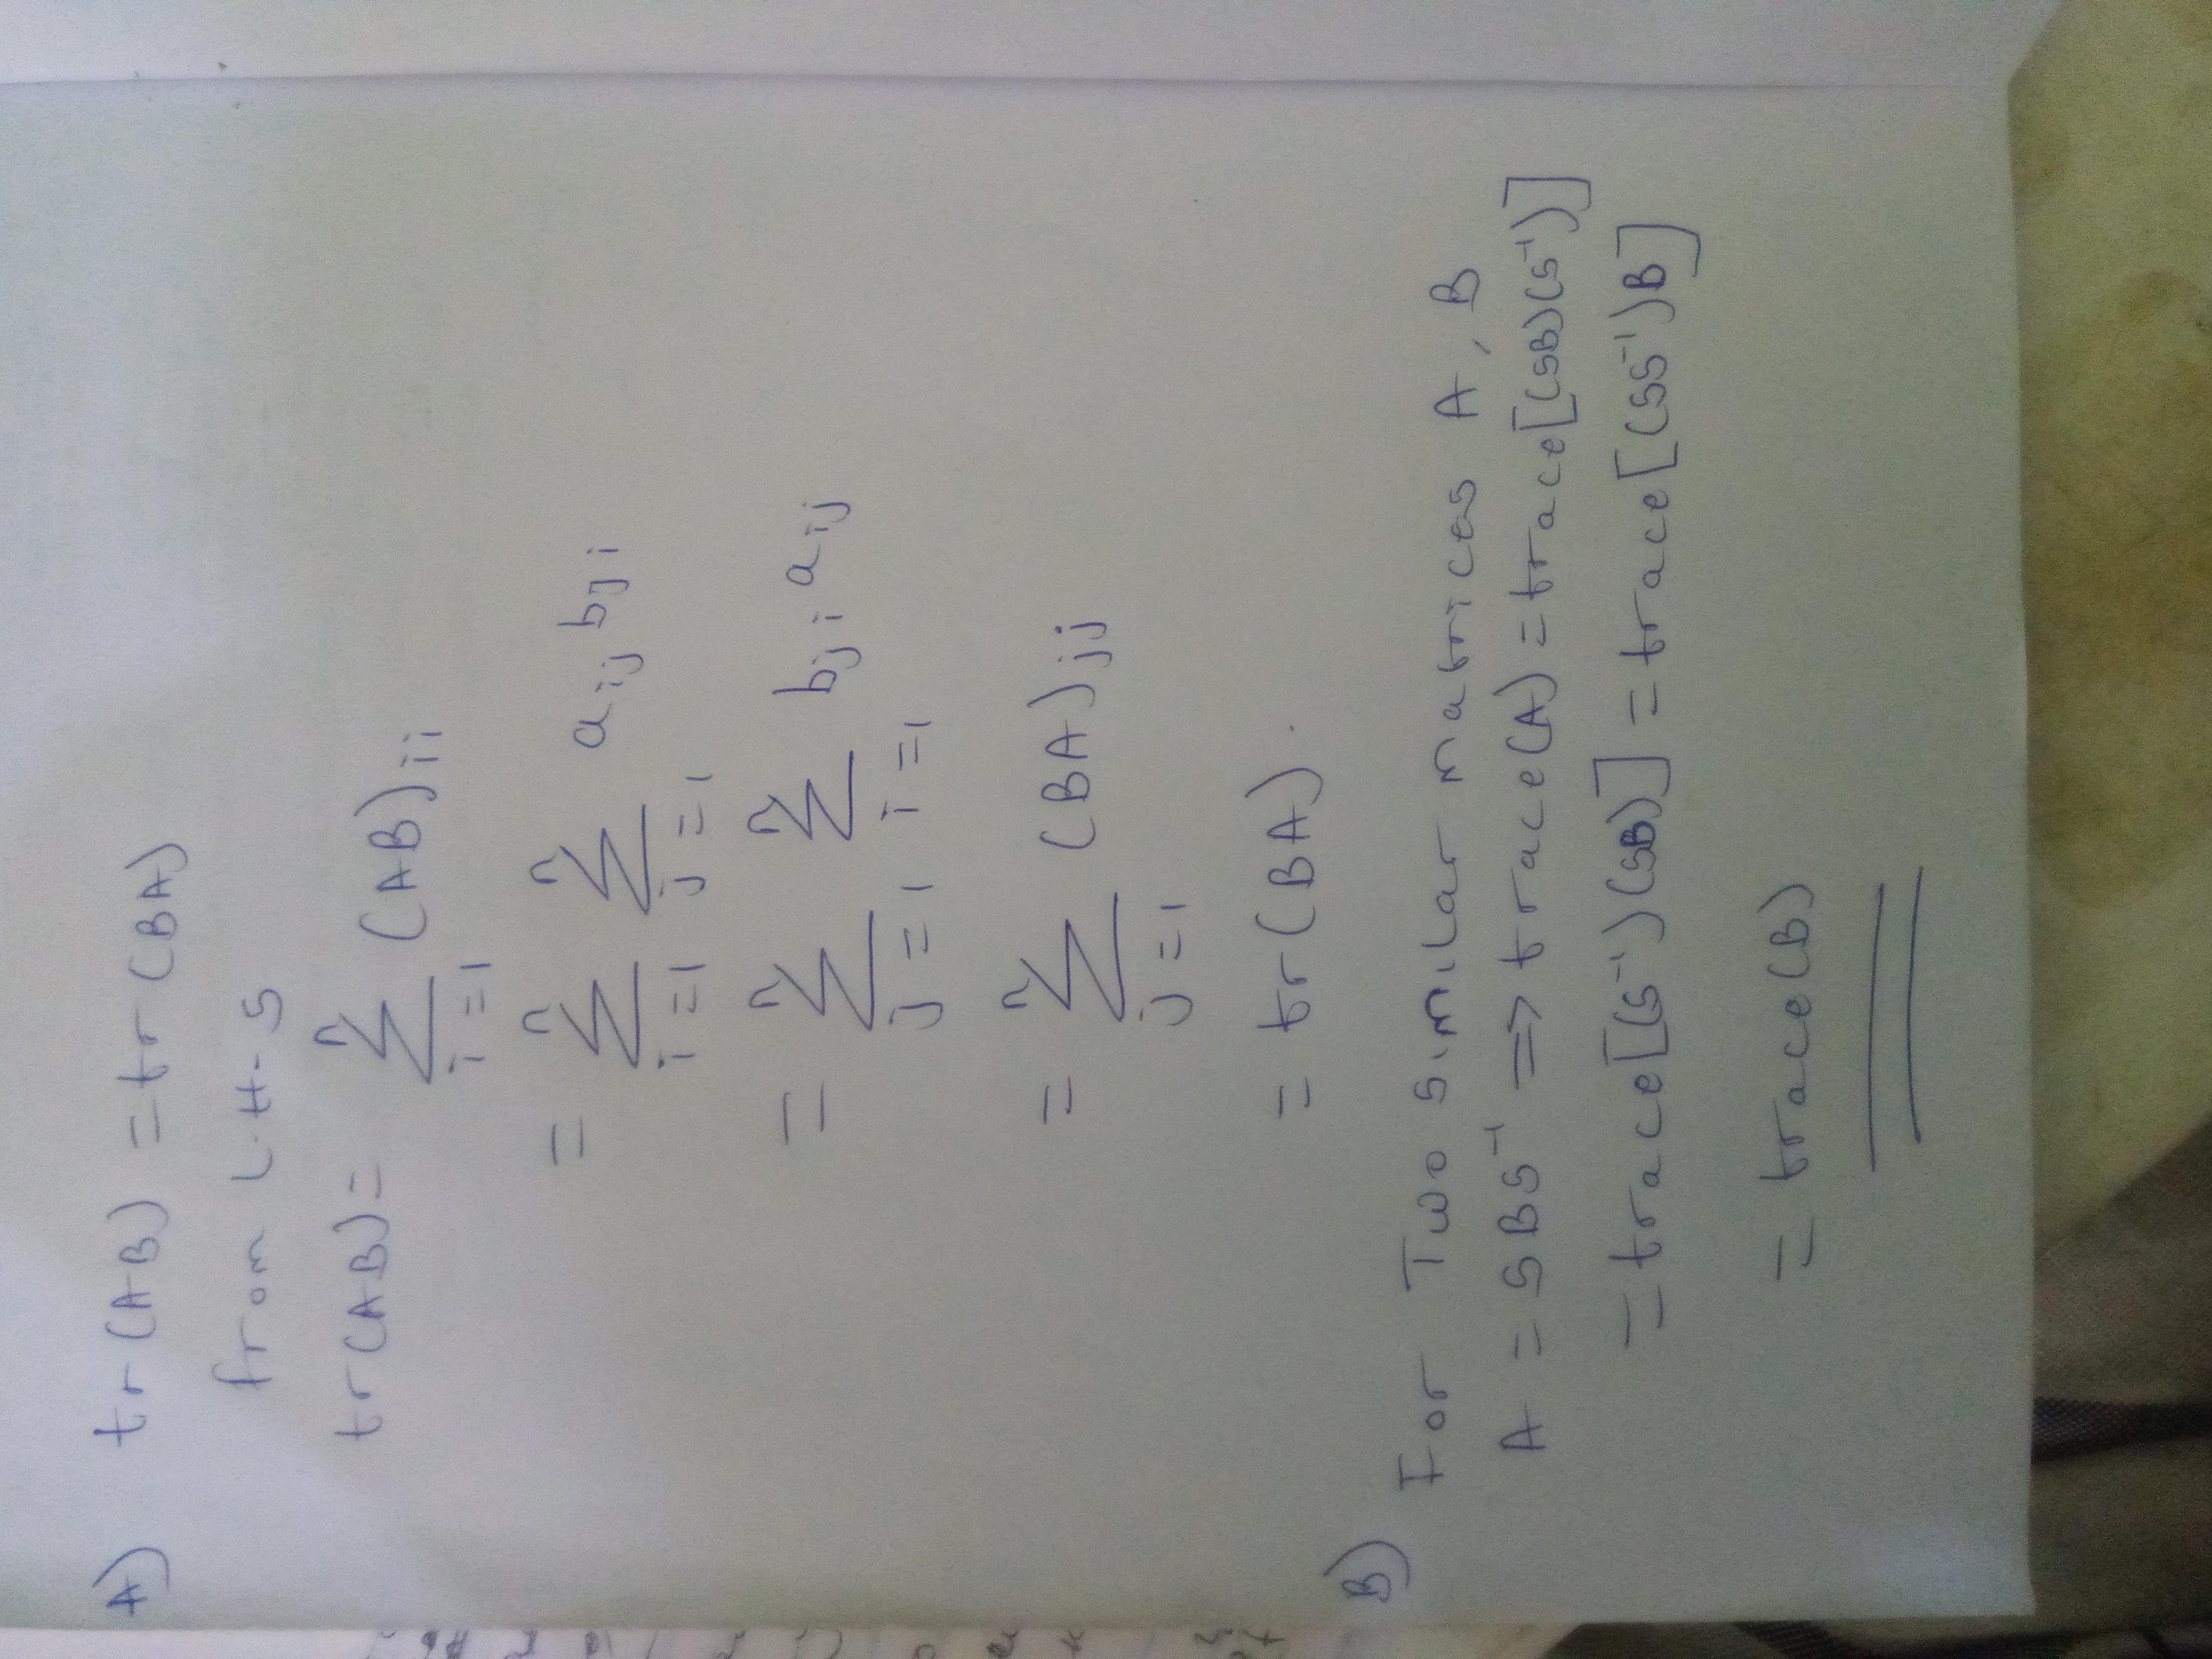 A) tr(AB) = tr(BA)
from L.H.S
tr(AB) = n∑i=1 (AB)ii
= n∑i=1 n∑j=1 aij bji
= n∑j=1 n∑i=1 bji aij
= n∑j=1 (BA)jj
= tr(BA).
B) For Two similar matrices A, B
A = SBS⁻¹ => trace(A) = trace[(SB)(S⁻¹)]
= trace[(S⁻¹)(SB)] = trace[(SS⁻¹)B]
= trace(B)